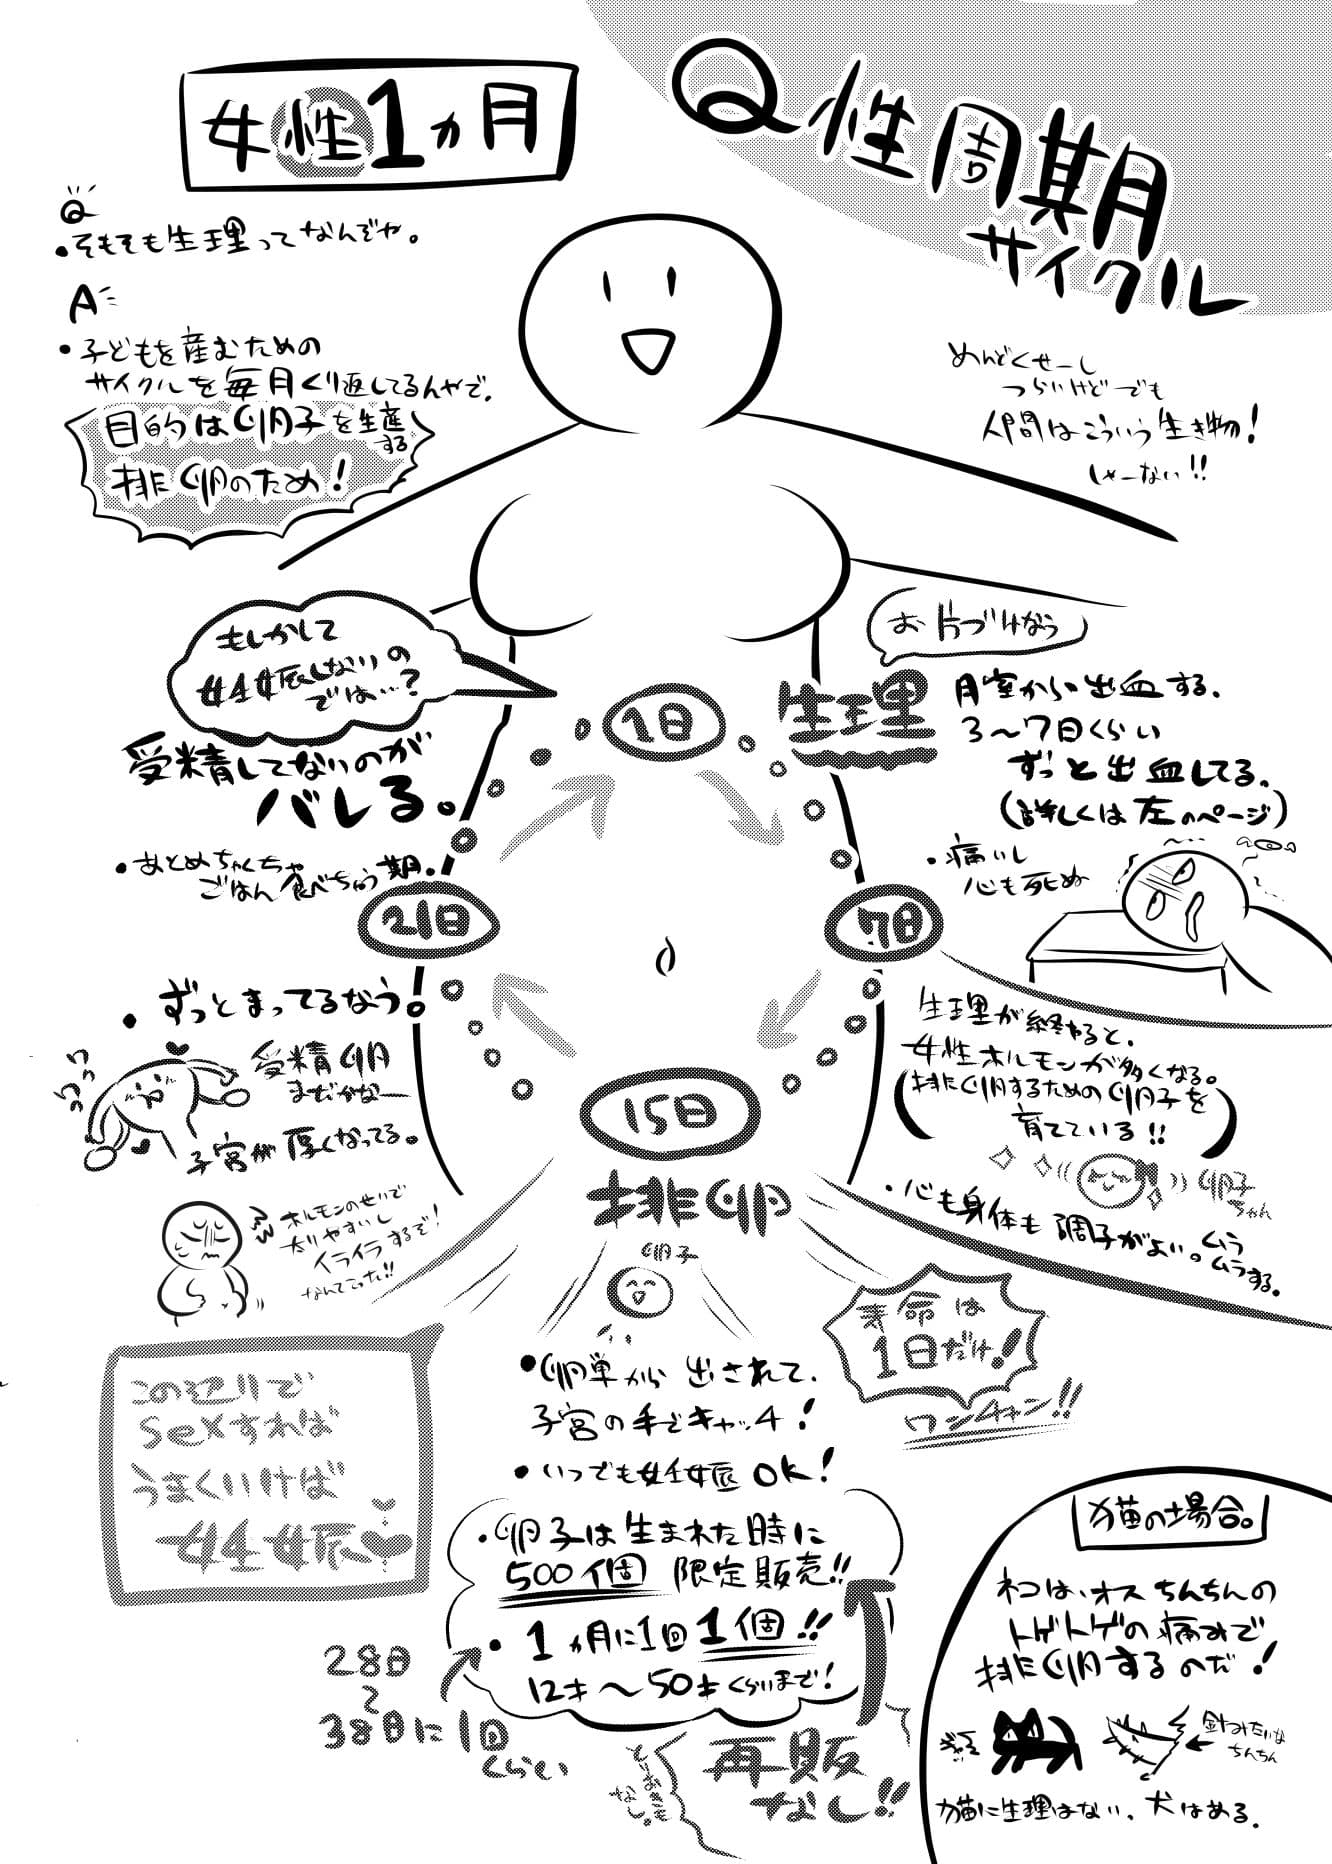 女性1ヵ月
Q性周期
サイクル
Q
・そもそも生理ってなんぞや。
A
・子どもを産むための
サイクルを毎月くり返してるんやで.
目的は卵子を生産する
排卵のため!
めんどくせーし
つらいけどでも
人間はこういう生き物!
しゃーない!!
もしかして
妊娠しないの
では…?
受精してないのが
バレる。
・あとめちゃくちゃ
ごはん食べちゃう期.
お片づけなう
1日
生理
月室から出血する.
3〜7日くらい
ずっと出血してる.
(詳しくは左のページ)
・痛いし
心も死ぬ
21日
7日
・ずっとまってるなう。
受精卵
まだかなー
子宮が厚くなってる.
ホルモンのせいで
太りやすいし
イライラするで!
なんてこった!!
生理が終わると.
女性ホルモンが多くなる。
(排卵するための卵子を
育てている!!)
卵子
ちゃん
・心も身体も調子がよい。ムラ
ムラする。
15日
排卵
卵子
寿命は
1日だけ!
ワンチャン!!
・卵巣から出されて.
子宮の手でキャッチ!
・いつでも妊娠OK!
この辺りで
sexすれば
うまくいけば
妊娠
・卵子は生まれた時に
500個限定販売!!
・1ヵ月に1回1個!!
12才〜50才くらいまで!
28日
〜
38日に1回
くらい
とりおきも
なし。
再販
なし!!
猫の場合。
ネコは、オスちんちんの
トゲトゲの痛みで
排卵するのだ!
針みたいな
ちんちん
猫に生理はない、犬はある.